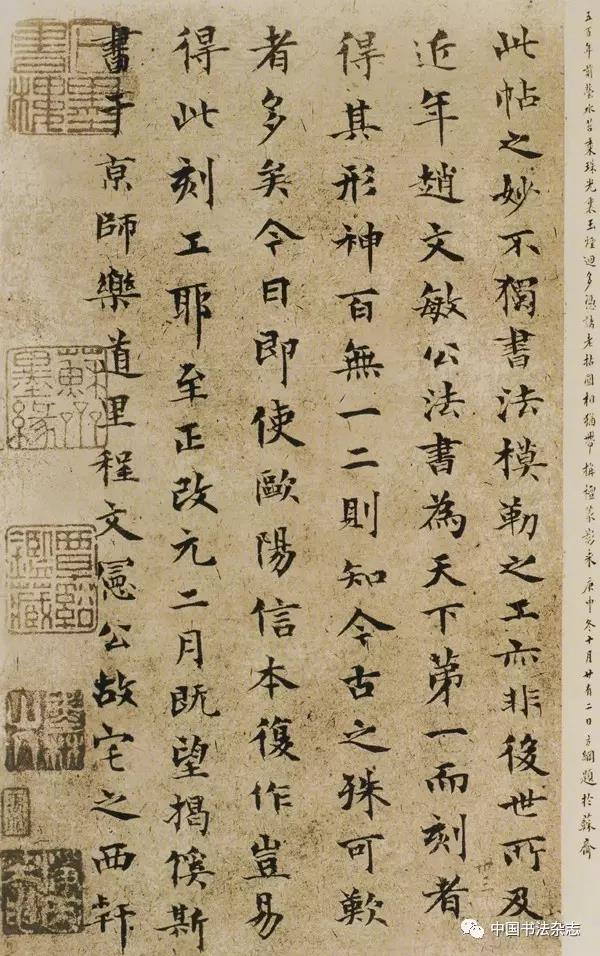 五百年前 庚申冬十月廿有二日方綱題於蘇齋
此帖之妙不獨書法模勒之工亦非後世所及
近年趙文敏公法書為天下第一而刻者
得其形神百無一二則知今古之殊可歎
者多矣今日即使歐陽信本復作豈易
得此刻工耶至正改元二月既望揭傒斯
書于京師樂道里程文憲公故宅之西軒
石墨書樓
蘇齋墨緣
覃谿鑑藏
中国书法杂志